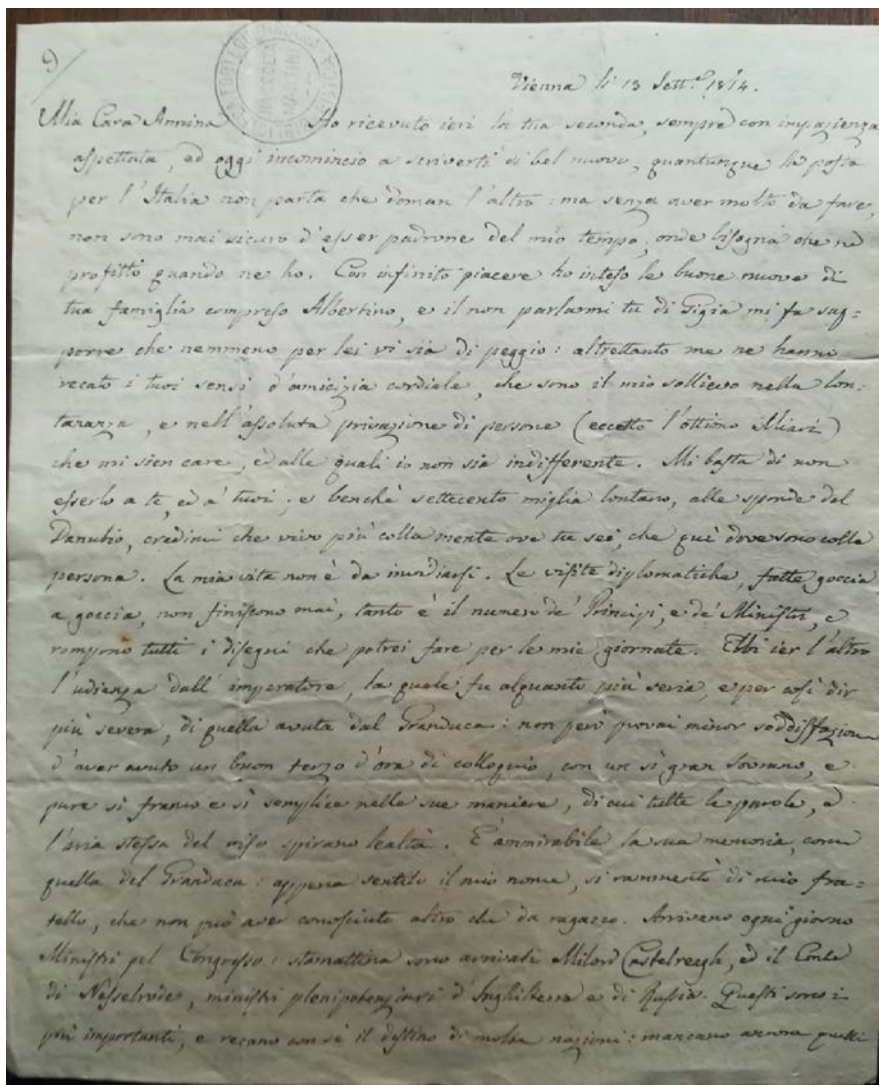 9/
Vienna li 13 Sett.e 1814.
Mia Cara Annina Ho ricevuto ieri la tua seconda, sempre con impazienza
aspettata, ed oggi incomincio a scriverti di bel nuovo, quantunque la posta
per l'Italia non parta che doman l'altro: ma senza aver molto da fare,
non sono mai sicuro d'esser padrone del mio tempo, onde bisogna che ne
profitti quando ne ho. Con infinito piacere ho inteso le buone nuove di
tua famiglia compreso Albertino, e il non parlarmi tu di Gigia mi fa sup=
porre che nemmeno per lei vi sia di peggio: altrettanto me ne hanno
recato i tuoi sensi d'amicizia cordiale, che sono il mio sollievo nella lon=
tananza, e nell'assoluta privazione di persone (eccetto l'ottimo Miari)
che mi sien care, ed alle quali io non sia indifferente. Mi basta di non
esserlo a te, ed a' tuoi; e benchè settecento miglia lontano, alle sponde del
Danubio, credimi che vivo più colla mente ove tu sei, che quì dove sono colla
persona. La mia vita non è da invidiarsi. Le visite diplomatiche, fatte goccia
a goccia, non finiscono mai, tanto è il numero de' Principi, e de' Ministri, e
rompono tutti i disegni che potrei fare per le mie giornate. Ebbi ier l'altro
l'udienza dall'imperatore, la quale fu alquanto più seria, e per così dir
più severa, di quella avuta dal Granduca: non però provai minor soddisfazione
d'aver avuto un buon terzo d'ora di colloquio, con un sì gran Sovrano, e
pure sì franco e sì semplice nelle sue maniere, di cui tutte le parole, e
l'aria stessa del viso spirano lealtà. È ammirabile la sua memoria, come
quella del Granduca: appena sentito il mio nome, si rammentò di mio fra=
tello, che non può aver conosciuto altro che da ragazzo. Arrivano ogni giorno
Ministri pel Congresso: stamattina sono arrivati Milord Castelreagh, ed il Conte
di Nesselrode, ministri plenipotenziari d'Inghilterra e di Russia. Questi sono i
più importanti, e recano con sè il destino di molte nazioni: mancano ancora quelli